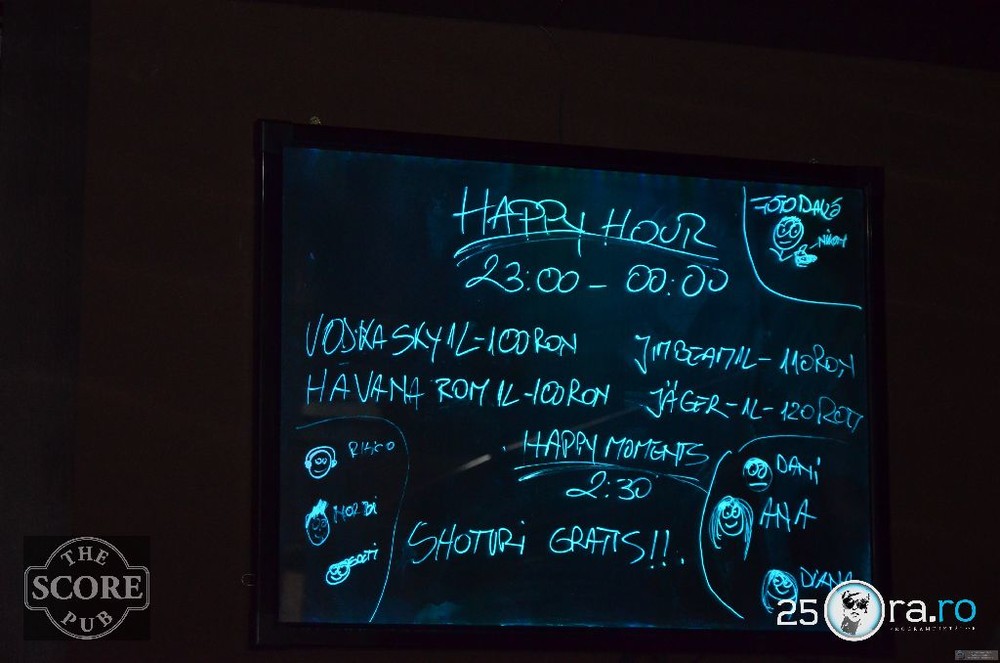 HAPPY HOUR
23:00 - 00:00
FOTO
NIKON
VODKA SKY 1L - 100 RON
JIM BEAM 1L - 110 RON
HAVANA ROM 1L - 100 RON
JÄGER - 1L - 120 RON
HAPPY MOMENTS
2:30
SHOTURI GRATIS!!.
DANI
ANA
DIANA
THE
SCORE
PUB
25ORA.ro